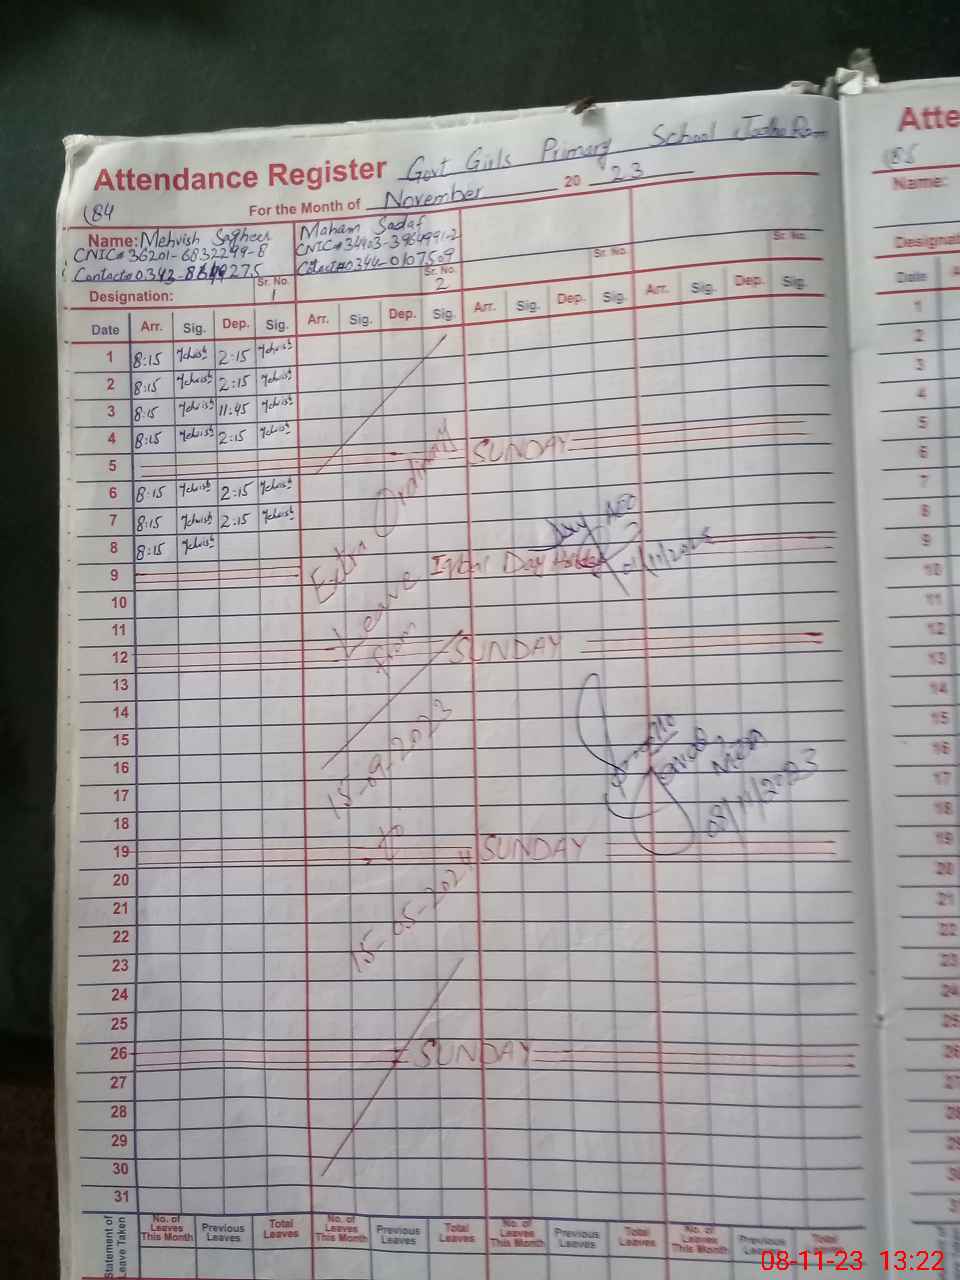 Attendance Register Govt Girls Primary School
184
For the Month of November 20 23
Name: Mehvish Sagheer
CNIC# 36201-6832299-8
Contact# 0342-8649275
Designation: Sr. No. 1
Maham Sadaf
CNIC# 34403-3964991-2
Contact# 0344-0107509
Sr. No. 2
Sr. No.
Sr. No.
Date Arr. Sig. Dep. Sig. Arr. Sig. Dep. Sig. Arr. Sig. Dep. Sig. Arr. Sig. Dep. Sig.
1 8:15 2:15
2 8:15 2:15
3 8:15 11:45
4 8:15 2:15
5 SUNDAY
6 8:15 2:15
7 8:15 2:15
8 8:15
9 Iqbal Day
10
11
12 SUNDAY
13
14
15
16
17
18
19 SUNDAY
20
21
22
23
24
25
26 SUNDAY
27
28
29
30
31
Extra Ordinary
Leave
from
15-09/2023
to
15-05-2024
AEO
08/11/2023
Statement of Leave Taken
No. of Leaves This Month Previous Leaves Total Leaves No. of Leaves This Month Previous Leaves Total Leaves No. of Leaves This Month Previous Leaves Total Leaves No. of Leaves This Month Previous Leaves Total Leaves
Atte
185
Name:
Designat
Date
1
2
3
4
5
6
7
8
9
10
11
12
13
14
15
16
17
18
19
20
21
22
23
24
25
26
27
28
29
30
08-11-23 13:22